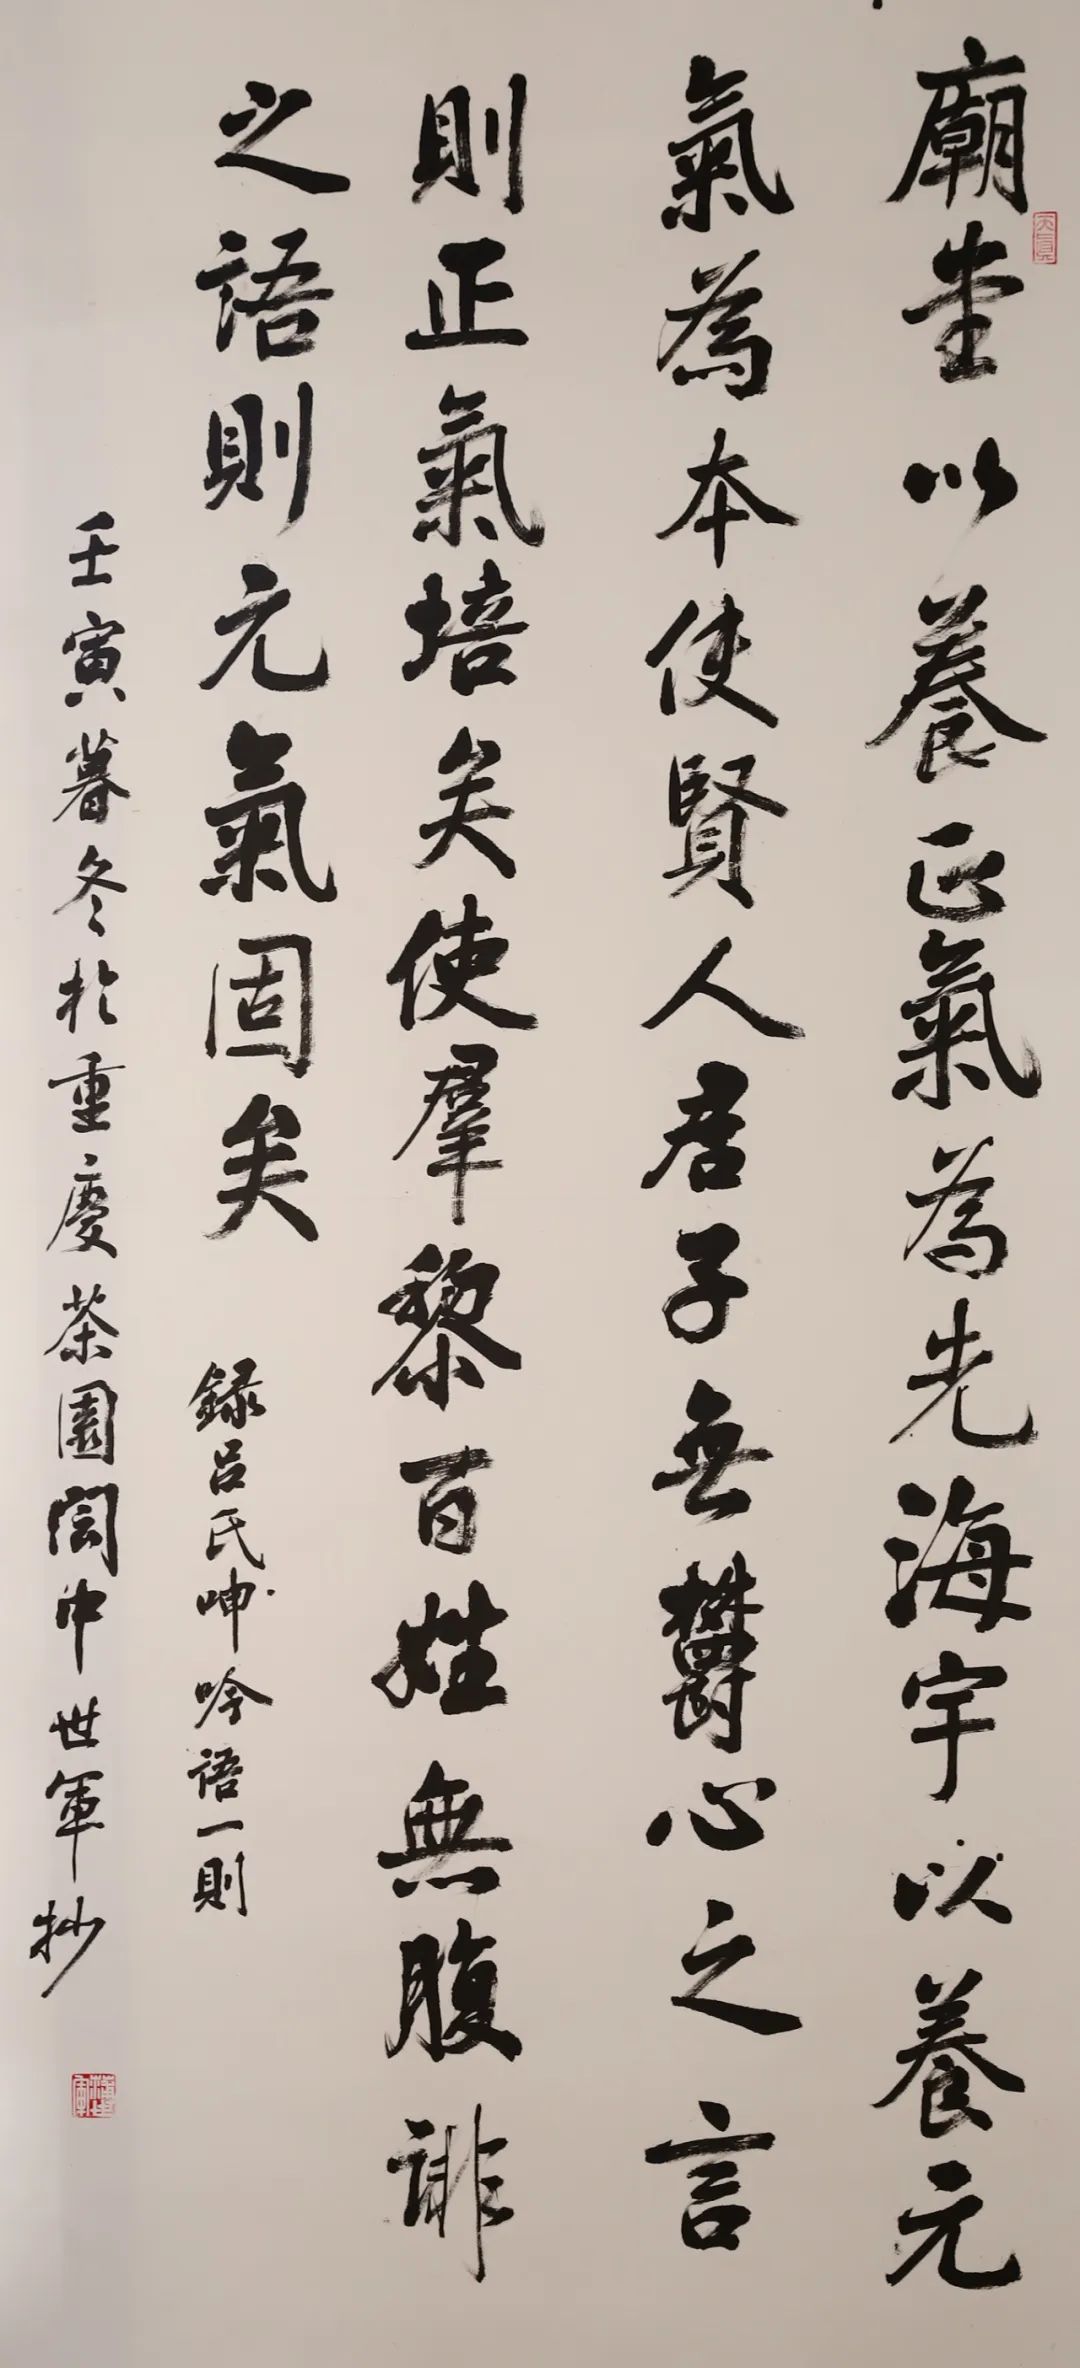 廟堂以養正氣為先海宇以養元
氣為本使賢人君子無鬱心之言
則正氣培矣使羣黎百姓無腹誹
之語則元氣固矣
錄呂氏呻吟語一則
壬寅暮冬於重慶茶園閣中世軍抄